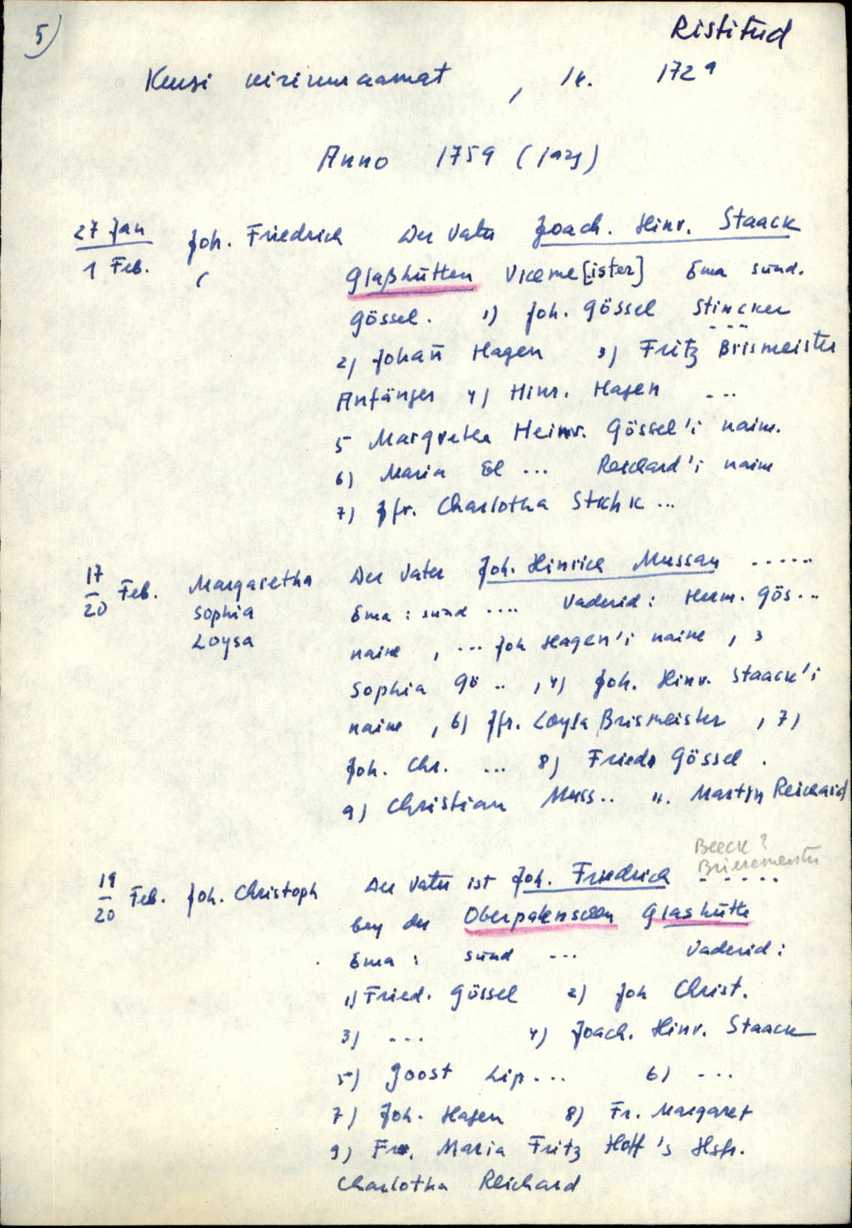 5)
Ristitud
Kursi kirikuraamat, lk. 1729
Anno 1759 (
27 Jan
1 Feb.
Joh. Friedrich Der Vater Joach. Hinr. Staack
Glaßhütten Viceme[ister] Ema sünd.
Gössel. 1) Joh. Gössel
2) Johañ Hagen 3) Fritz Brismeister
Anfänger 4) Hinr. Hagen ...
5 Margretha Heinr. Gössel'i naine.
6) Maria El ... Reichard'i naine
7) Jfr. Charlotha ...
17
20 Feb. Margaretha Der Vater Joh. Hinrich Mussan .....
Sophia Ema: sünd .... Vaderid: Herm. Gös...
Loysa naine, ... Joh Hagen'i naine, 3
Sophia Gö .., 4) Joh. Hinr. Staack'i
naine, 6) Jfr. Loysa Brismeister, 7)
Joh. Chr. ... 8) Friedr Gössel.
9) Christian Muss.. Martin Reichard
Beeck?
Brisemeister
19
20 Feb. Joh. Christoph Der Vater ist Joh. Friedrich .....
bey der Oberpalenschen Glashütte
Ema: sünd ... Vaderid:
1) Fried. Gössel 2) Joh Christ.
3) ... 4) Joach. Hinr. Staack
5) Joost Lip... 6) ...
7) Joh. Hagen 8) Fr. Margaret
9) Fr. Maria Fritz Hoff's Hsfr.
Charlotha Reichard